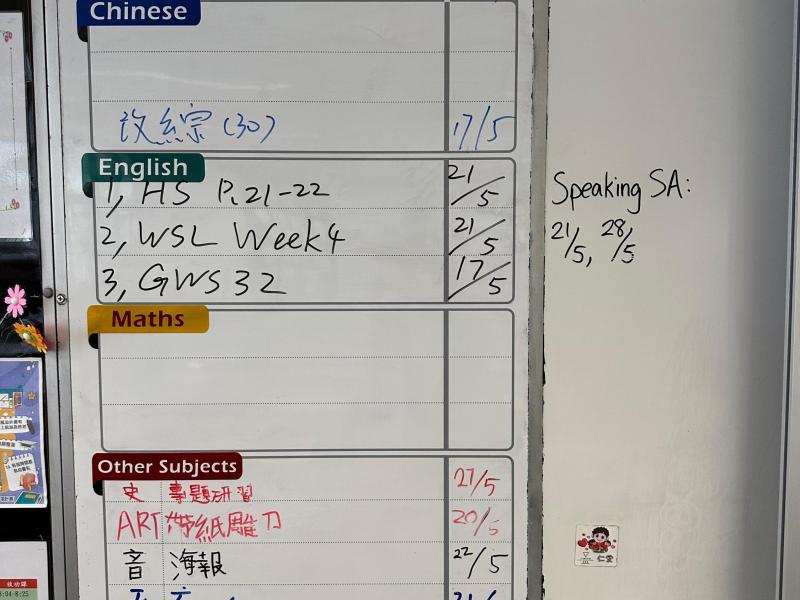 Chinese
改綜 (30) 17/5
English
1, HS P. 21-22 21/5
2, WSL Week 4 21/5
3, GWS 32 17/5
Speaking SA:
21/5, 28/5
Maths
Other Subjects
史 專題研習 27/5
ART 帶紙雕刀 20/5
音 海報 22/5
仁愛
收功課
8:04-8:25